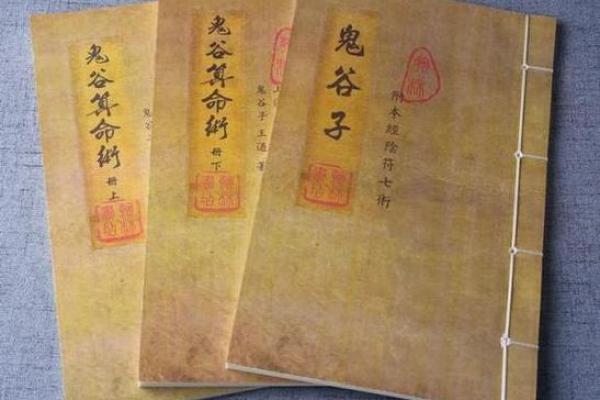 鬼谷子
附本經陰符七術
鬼谷算命術
册下
鬼谷子王逎著
鬼谷算命術
册上
鬼谷